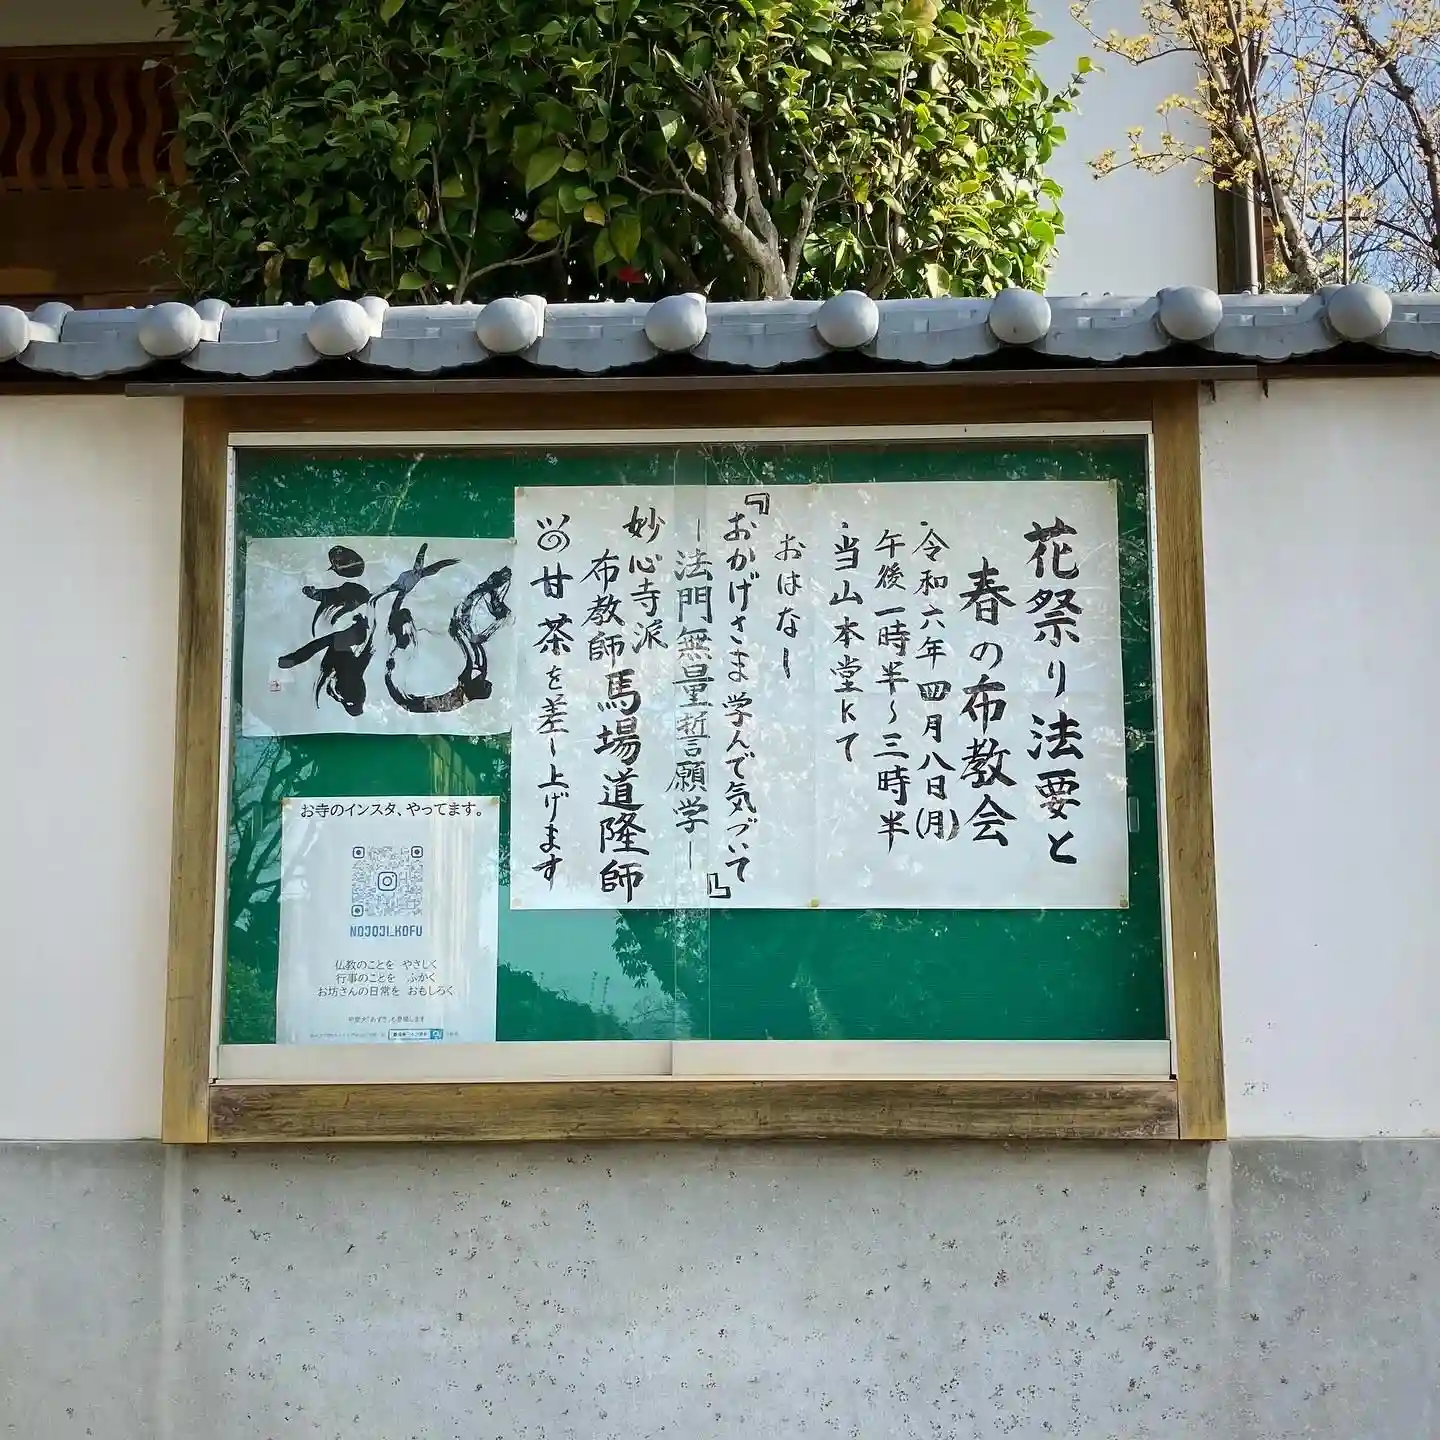 花祭り法要と
春の布教会
・令和六年四月八日(月)
午後一時半〜三時半
・当山本堂にて
おはなし
『おかげさま 学んで気づいて
―法門無量誓願学―』
妙心寺派
布教師 馬場道隆師
甘茶を差し上げます
龍
お寺のインスタ、やってます。
NOJOJI_KOFU
仏教のことを やさしく
行事のことを ふかく
お坊さんの日常を おもしろく